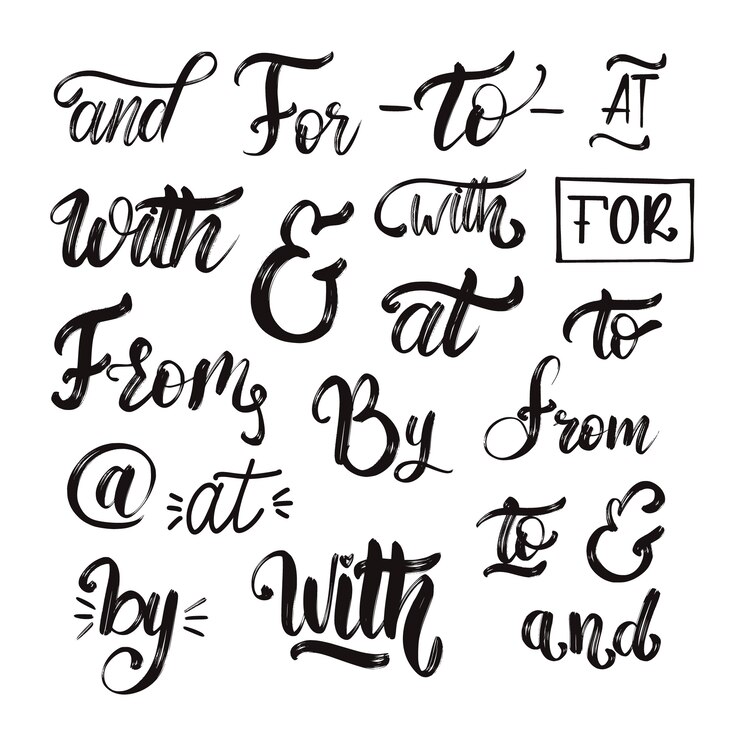 and For -to- AT
With & with FOR
From at to
By from
@ at to &
by With and